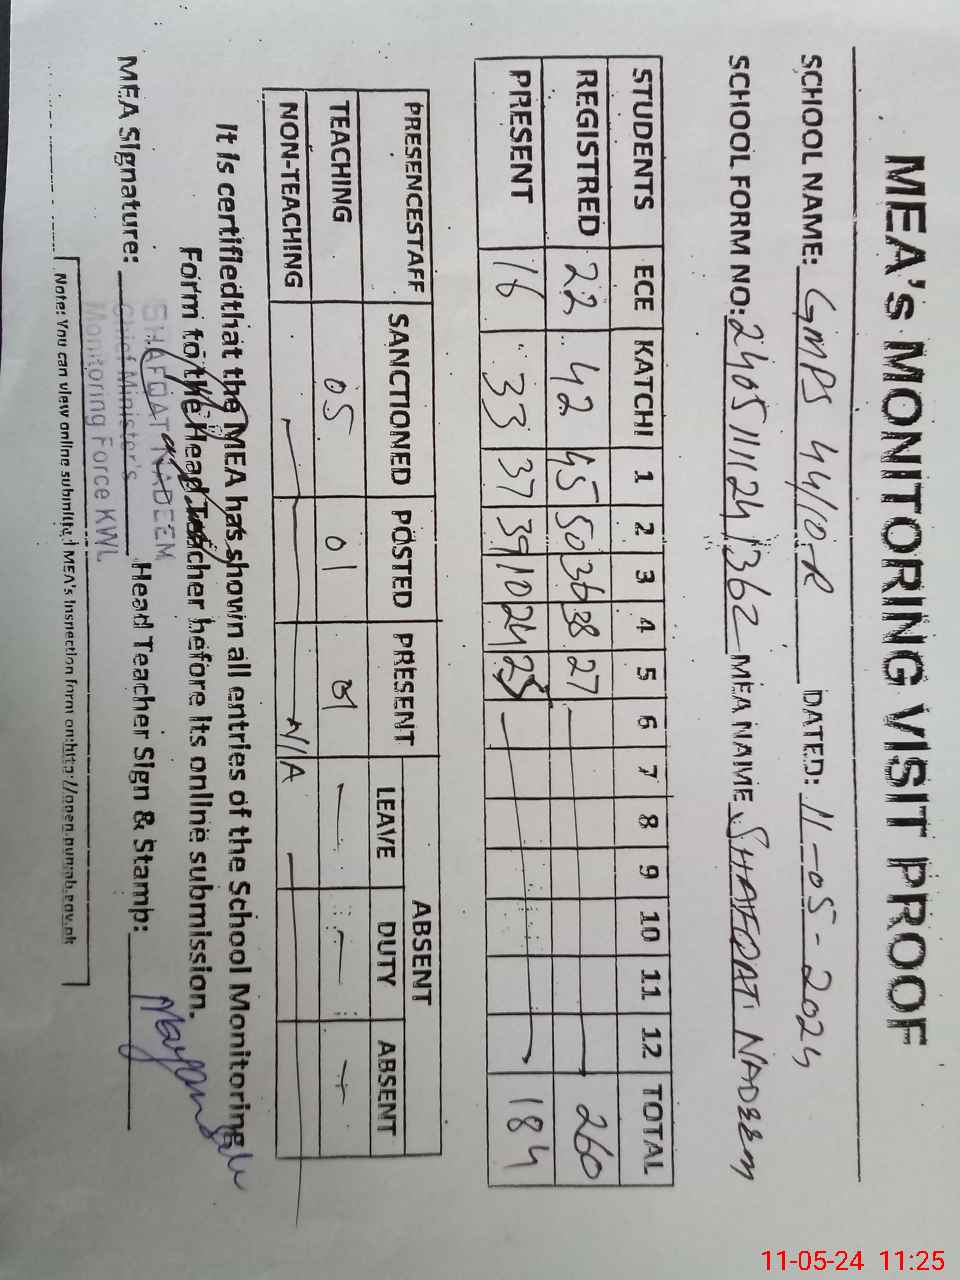 MEA's MONITORING VISIT PROOF
SCHOOL NAME: GMPS 44/10-R DATED: 11-05-2024
SCHOOL FORM NO: 24051111241362 MEA NAME SHAFQAT NADEEM
STUDENTS ECE KATCHI 1 2 3 4 5 6 7 8 9 10 11 12 TOTAL
REGISTRED 22 42 45 50 36 38 27 260
PRESENT 16 33 37 39 10 24 25 184
PRESENCESTAFF SANCTIONED POSTED PRESENT ABSENT
LEAVE DUTY ABSENT
TEACHING 05 01 01 - - -
NON-TEACHING N/A
It is certifiedthat the MEA has shown all entries of the School Monitoring
Form to the Head Teacher before its online submission.
MEA Signature: Head Teacher Sign & Stamp:
SHAFQAT NADEEM
Chief Minister's
Monitoring Force KWL
Note: You can view online submitted MEA's Inspection form on:http://open.punjab.gov.pk
11-05-24 11:25